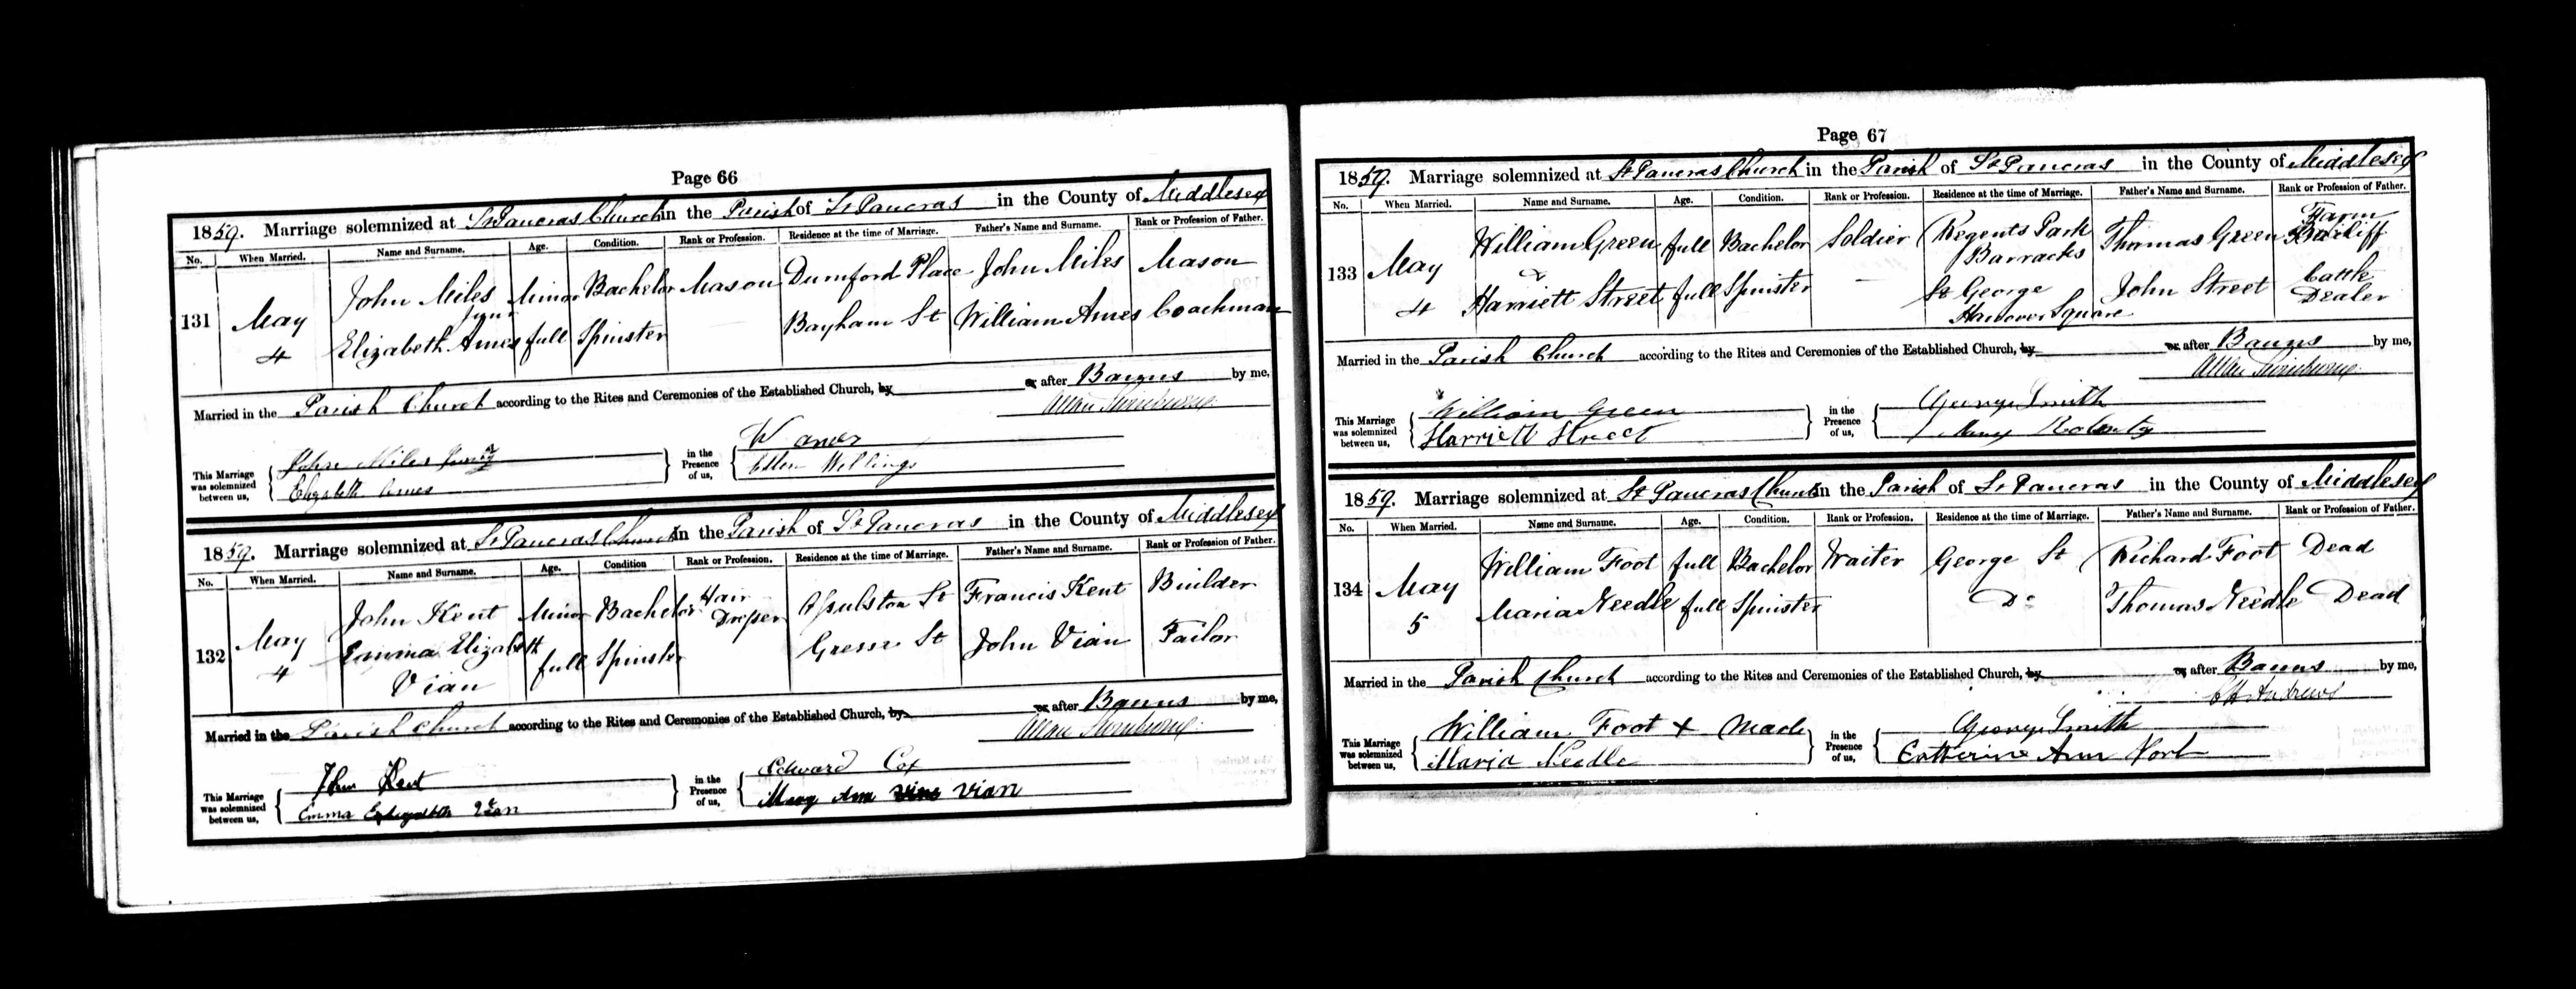 Page 66
1859. Marriage solemnized at St Pancras Church in the Parish of St Pancras in the County of Middlesex
No. When Married. Name and Surname. Age. Condition. Rank or Profession. Residence at the time of Marriage. Father's Name and Surname. Rank or Profession of Father.
131 May 4 John Miles junr Minor Bachelor Mason Durnford Place John Miles Mason
Elizabeth Ames full Spinster Bayham St William Ames Coachman
Married in the Parish Church according to the Rites and Ceremonies of the Established Church, by or after Banns by me,
This Marriage was solemnized between us, John Miles Junr
Elizabeth Ames
in the Presence of us, W Ames
Ellen Wellings
1859. Marriage solemnized at St Pancras Church in the Parish of St Pancras in the County of Middlesex
No. When Married. Name and Surname. Age. Condition Rank or Profession. Residence at the time of Marriage. Father's Name and Surname. Rank or Profession of Father.
132 May 4 John Kent Minor Bachelor Hair Dresser Ossulston St Francis Kent Builder
Emma Elizabeth Vian full Spinster Gresse St John Vian Tailor
Married in the Parish Church according to the Rites and Ceremonies of the Established Church, by or after Banns by me,
This Marriage was solemnized between us, John Kent
Emma Elizabeth Vian
in the Presence of us, Edward Cox
Mary Ann Vian
Page 67
1859. Marriage solemnized at St Pancras Church in the Parish of St Pancras in the County of Middlesex
No. When Married. Name and Surname. Age. Condition. Rank or Profession. Residence at the time of Marriage. Father's Name and Surname. Rank or Profession of Father.
133 May 4 William Green full Bachelor Soldier Regents Park Barracks Thomas Green Farm Bailiff
&
Harriett Street full Spinster — St George Hanover Square John Street Cattle Dealer
Married in the Parish Church according to the Rites and Ceremonies of the Established Church, by or after Banns by me,
This Marriage was solemnized between us, William Green
Harriett Street
in the Presence of us, George Smith
Mary
1859. Marriage solemnized at St Pancras Church in the Parish of St Pancras in the County of Middlesex
No. When Married. Name and Surname. Age. Condition. Rank or Profession. Residence at the time of Marriage. Father's Name and Surname. Rank or Profession of Father.
134 May 5 William Foot full Bachelor Waiter George St Richard Foot Dead
Maria Needle full Spinster Do Thomas Needle Dead
Married in the Parish Church according to the Rites and Ceremonies of the Established Church, by or after Banns by me,
Andrews
This Marriage was solemnized between us, William Foot + Mark
Maria Needle
in the Presence of us, George Smith
Catherine Ann